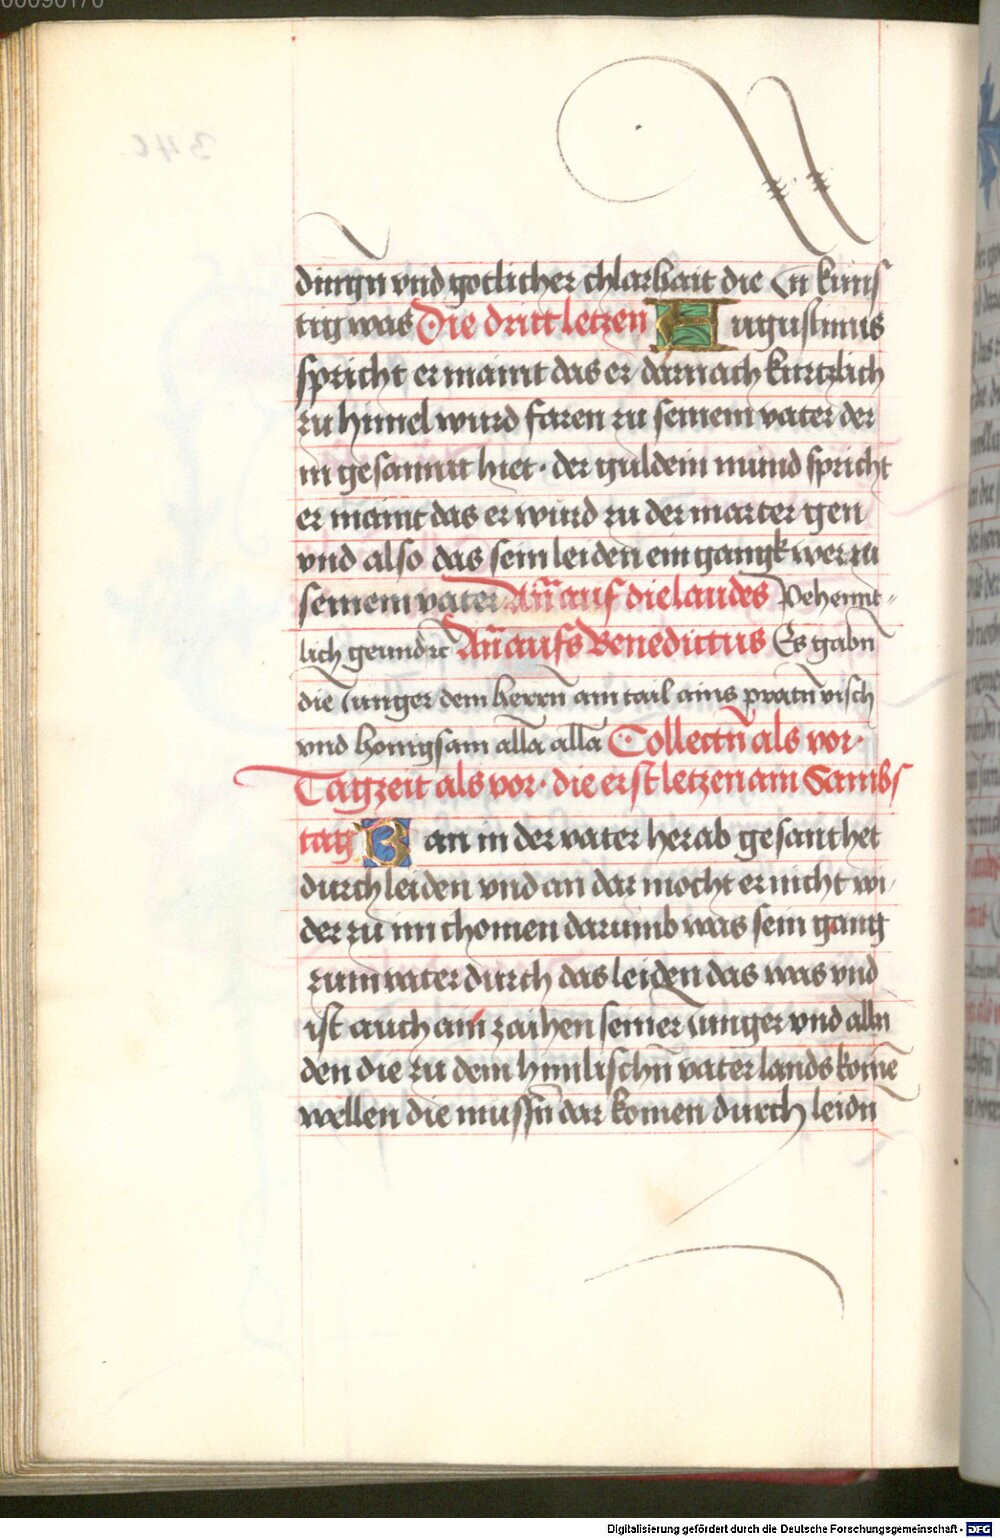 00090170
346
dingn vnd gotlicher chlarhait die in künf
tig was Die dritt letzen Augustinus
spricht er maint das er darnach kurtzlich
zu himel wurd faren zu seinem vater der
in gesannt hiet · der guldein mund spricht
er maint das er wurd zu der marter gen
vnd also das sein leiden ein gangk wer zu
seinem vater Añ auf die laudes Pehennt
lich geundrt Añ aufs Benedictus Es gabn
die iunger dem herrn am tail ains pratn visch
vnd honigsam alla alla Collectn als vor ·
Tagzeit als vor · die erst letzen am Sambs
tag Wan in der vater herab gesant het
durch leiden vnd an dar mocht er nicht wi
der zu im chomen darumb was sein gang
zum vater durch das leiden das was vnd
ist auch ain zaihen seiner iunger vnd alln
den die zu dem himlischn vaterlands komē
wellen die mussn dar komen durch leidn
Digitalisierung gefördert durch die Deutsche Forschungsgemeinschaft - DFG